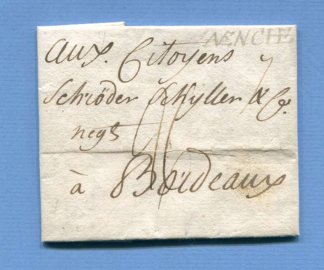 aux. Citoyens
Schröder Schyller & Co.
negts
à Bordeaux